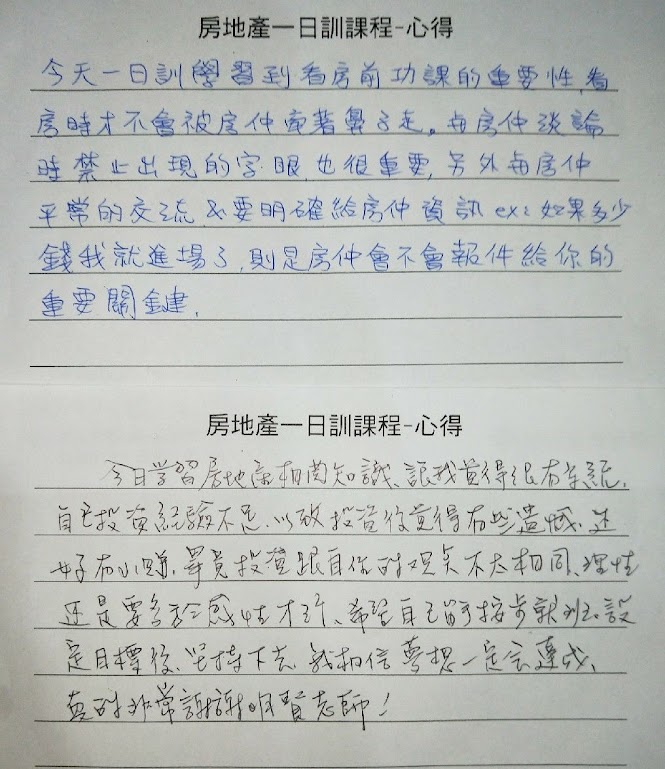 房地產一日訓課程-心得
今天一日訓學習到看房前功課的重要性,看
房時才不會被房仲牽著鼻子走。與房仲談論
時禁止出現的字眼,也很重要,另外與房仲
平常的交流,必要明確給房仲資訊 ex:如果多少
錢我就進場了,則是房仲會不會報件給你的
重要關鍵.
房地產一日訓課程-心得
今日学習房地產相関知識、讓我覚得很有系統,
自己投資経驗不足,以致投資後覚得有些遺憾,还
好有小賺,畢竟投資跟自住的观点不太相同、理性
还是要多於感性才行、希望自己能按步就班,設
定目標後、坚持下去、我相信夢想一定会達成、
真的非常謝謝明賢老師!